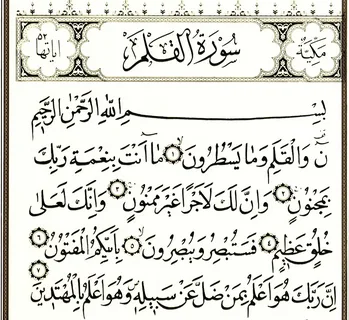 مكية
سورة القلم
آياتها ٥٢
بسم الله الرحمن الرحيم
نٓ وَالْقَلَمِ وَمَا يَسْطُرُونَ ١ مَٓا اَنْتَ بِنِعْمَةِ رَبِّكَ
بِمَجْنُونٍ ٢ وَاِنَّ لَكَ لَاَجْرًا غَيْرَ مَمْنُونٍ ٣ وَاِنَّكَ لَعَلٰى
خُلُقٍ عَظِيمٍ ٤ فَسَتُبْصِرُ وَيُبْصِرُونَ ٥ بِاَيِّكُمُ الْمَفْتُونُ ٦
اِنَّ رَبَّكَ هُوَ اَعْلَمُ بِمَنْ ضَلَّ عَنْ سَبِيلِهِ وَهُوَ اَعْلَمُ بِالْمُهْتَدِينَ ٧